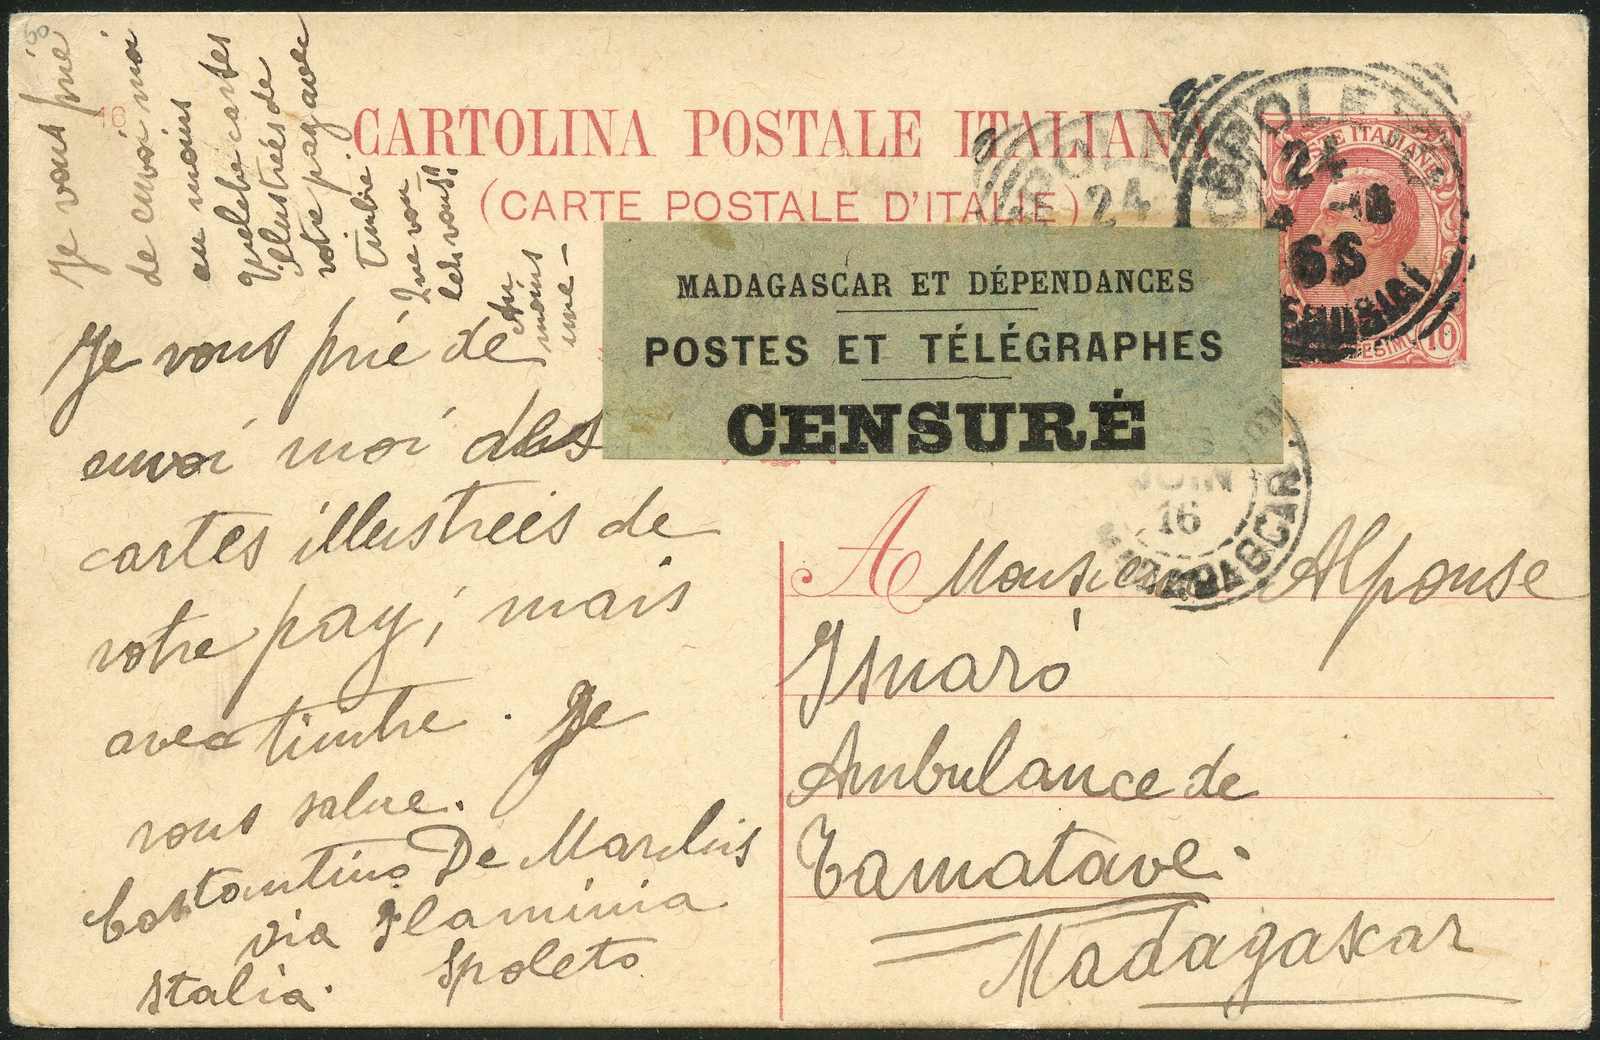 Je vous prie
de envoi moi
au moins
quelche cartes
illustrées de
votre pay avec
timbre.
Au
moins
une -
CARTOLINA POSTALE ITALIANA
(CARTE POSTALE D'ITALIE)
SPOLETO
24
MADAGASCAR ET DÉPENDANCES
POSTES ET TÉLÉGRAPHES
CENSURÉ
JUIN
16
MADAGASCAR
10
Je vous prie de
envoi moi des
cartes illustrées de
votre pay, mais
avec timbre. Je
vous salue.
Costantino De Marchis
via Flaminia
Spoleto
Italia.
A Monsieur Alphonse
Isnaró
Ambulance de
Tamatave.
Madagascar